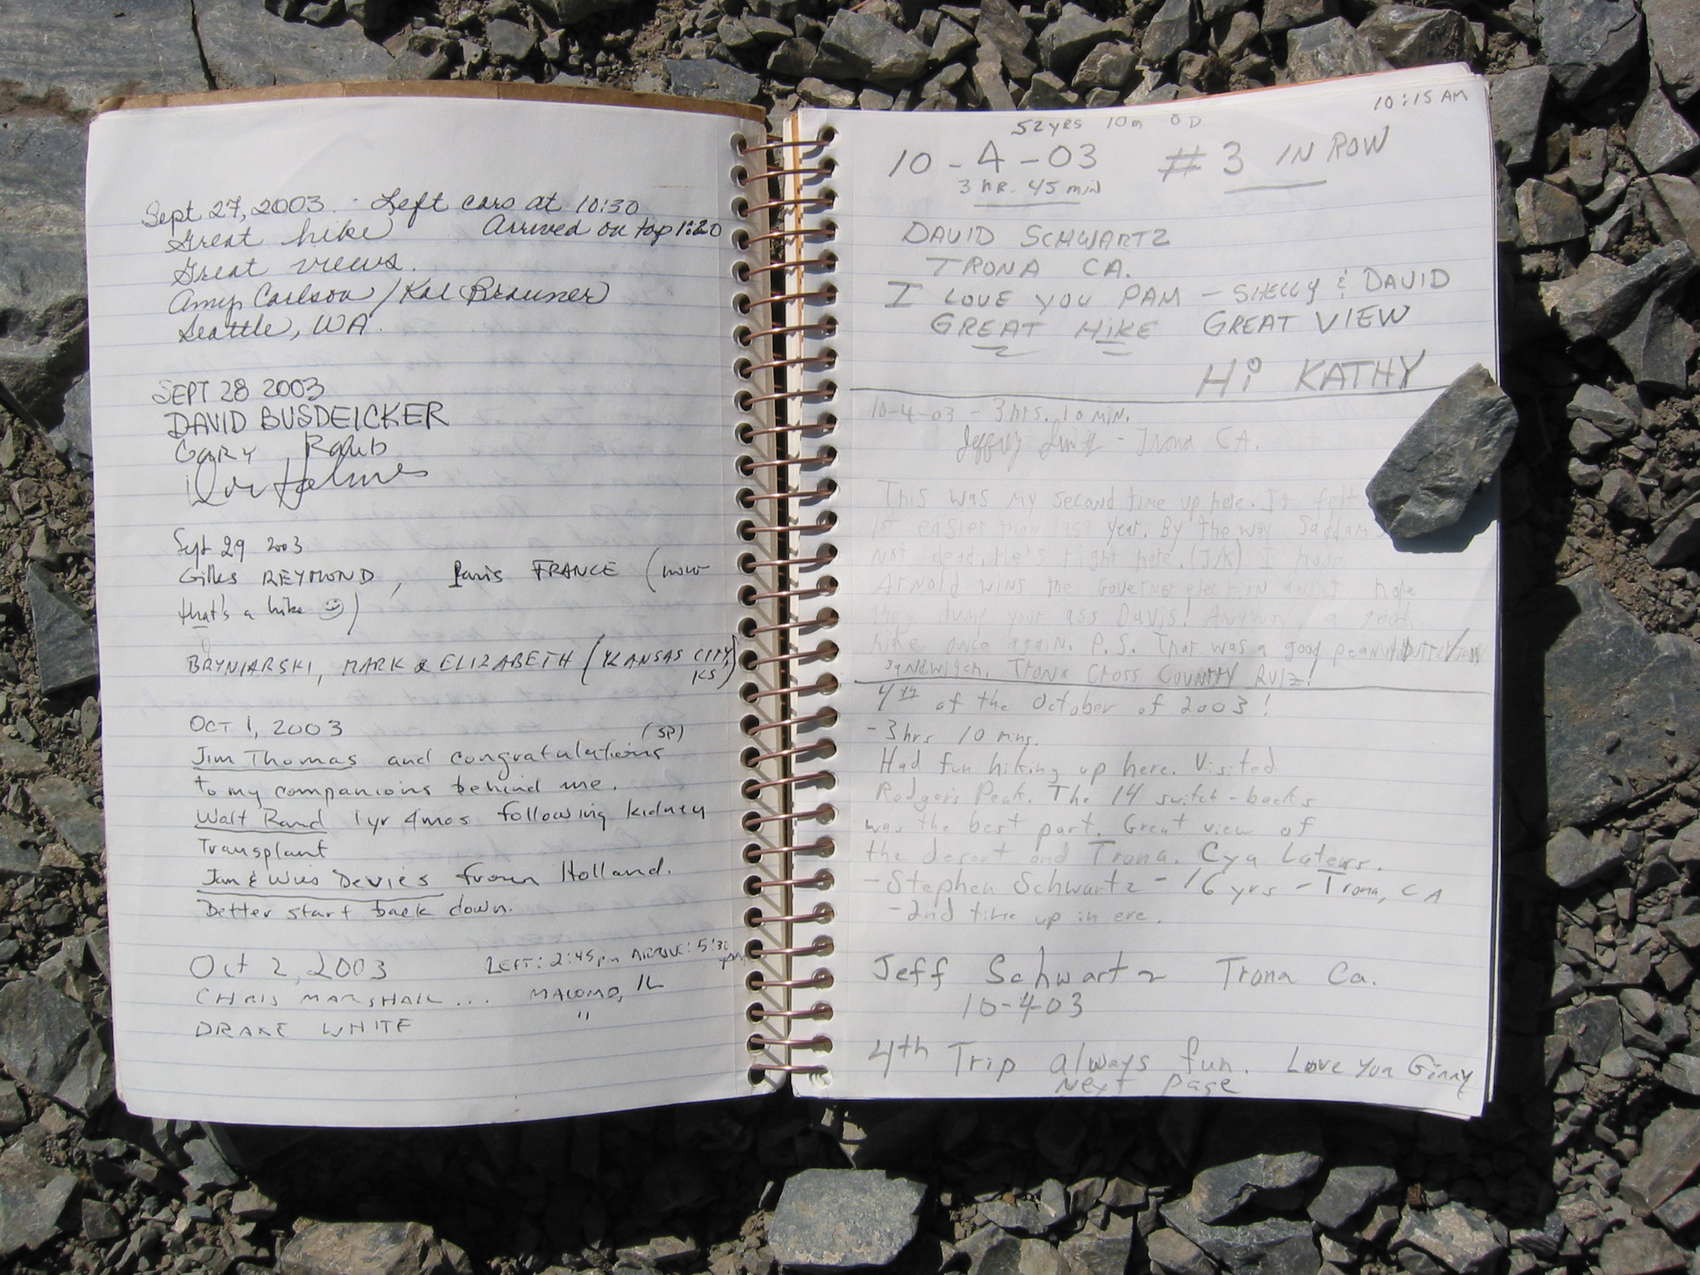 Sept 27, 2003 . Left cars at 10:30
Great hike Arrived on top 1:20
Great views.
Amy Carlson / Kal Brauner
Seattle, WA.
SEPT 28 2003
DAVID BUSDEICKER
GARY Raub
Holmes
Sept 29 2003
Gilles REYMOND, Paris FRANCE (now
that's a hike ☺)
BRYNIARSKI, MARK & ELIZABETH (KANSAS CITY,
KS)
OCT 1, 2003
(SP)
Jim Thomas and congratulations
to my companions behind me.
Walt Rand 1 yr 4mos following kidney
Transplant
Jan & Wies Devies from Holland.
Better start back down.
Oct 2, 2003 LEFT: 2:45pm ARRIVE: 5:30 pm
CHRIS MARSHALL ... MACOMB, IL
DRAKE WHITE "
10:15 AM
52 yrs 10m 0 D
10-4-03 #3 IN ROW
3 HR. 45 min
DAVID SCHWARTZ
TRONA CA.
I LOVE YOU PAM - SHELLY & DAVID
GREAT HIKE GREAT VIEW
Hi KATHY
10-4-03 - 3 hrs. 10 MIN.
Jeffrey - Trona CA.
This was my second time up here. It felt
easier than last year. By the way Saddam's
not dead, he's right here. (J/K) I hope
Arnold wins the Governor election
your ass Davis! Anyway, a great
hike once again. P.S. That was a good peanut butter
sandwitch. Trona Cross Country Rulz!
4th of the October of 2003!
- 3 hrs 10 mins.
Had fun hiking up here. Visited
Rodgers Peak. The 14 switch-backs
was the best part. Great view of
the desert and Trona. Cya Laters.
- Stephen Schwartz - 16 yrs - Trona, CA
- 2nd time up in ere.
Jeff Schwartz Trona Ca.
10-4-03
4th Trip always fun. Love you Ginny
Next Page